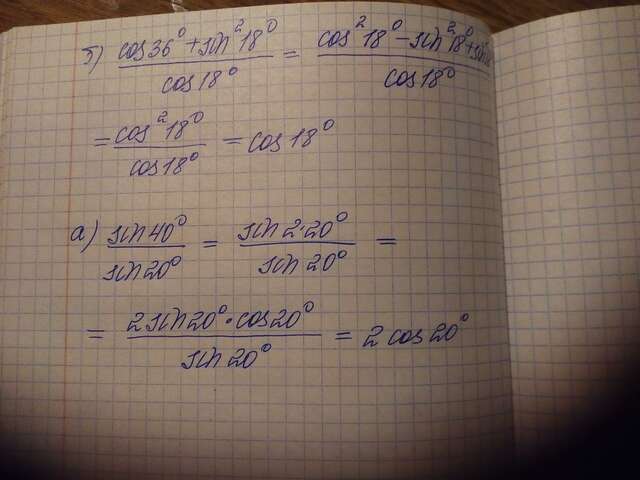 б) (cos 36° + sin² 18°) / cos 18° = (cos² 18° - sin² 18° + sin) / cos 18°
= cos² 18° / cos 18° = cos 18°
а) sin 40° / sin 20° = sin 2·20° / sin 20° =
= 2 sin 20° · cos 20° / sin 20° = 2 cos 20°